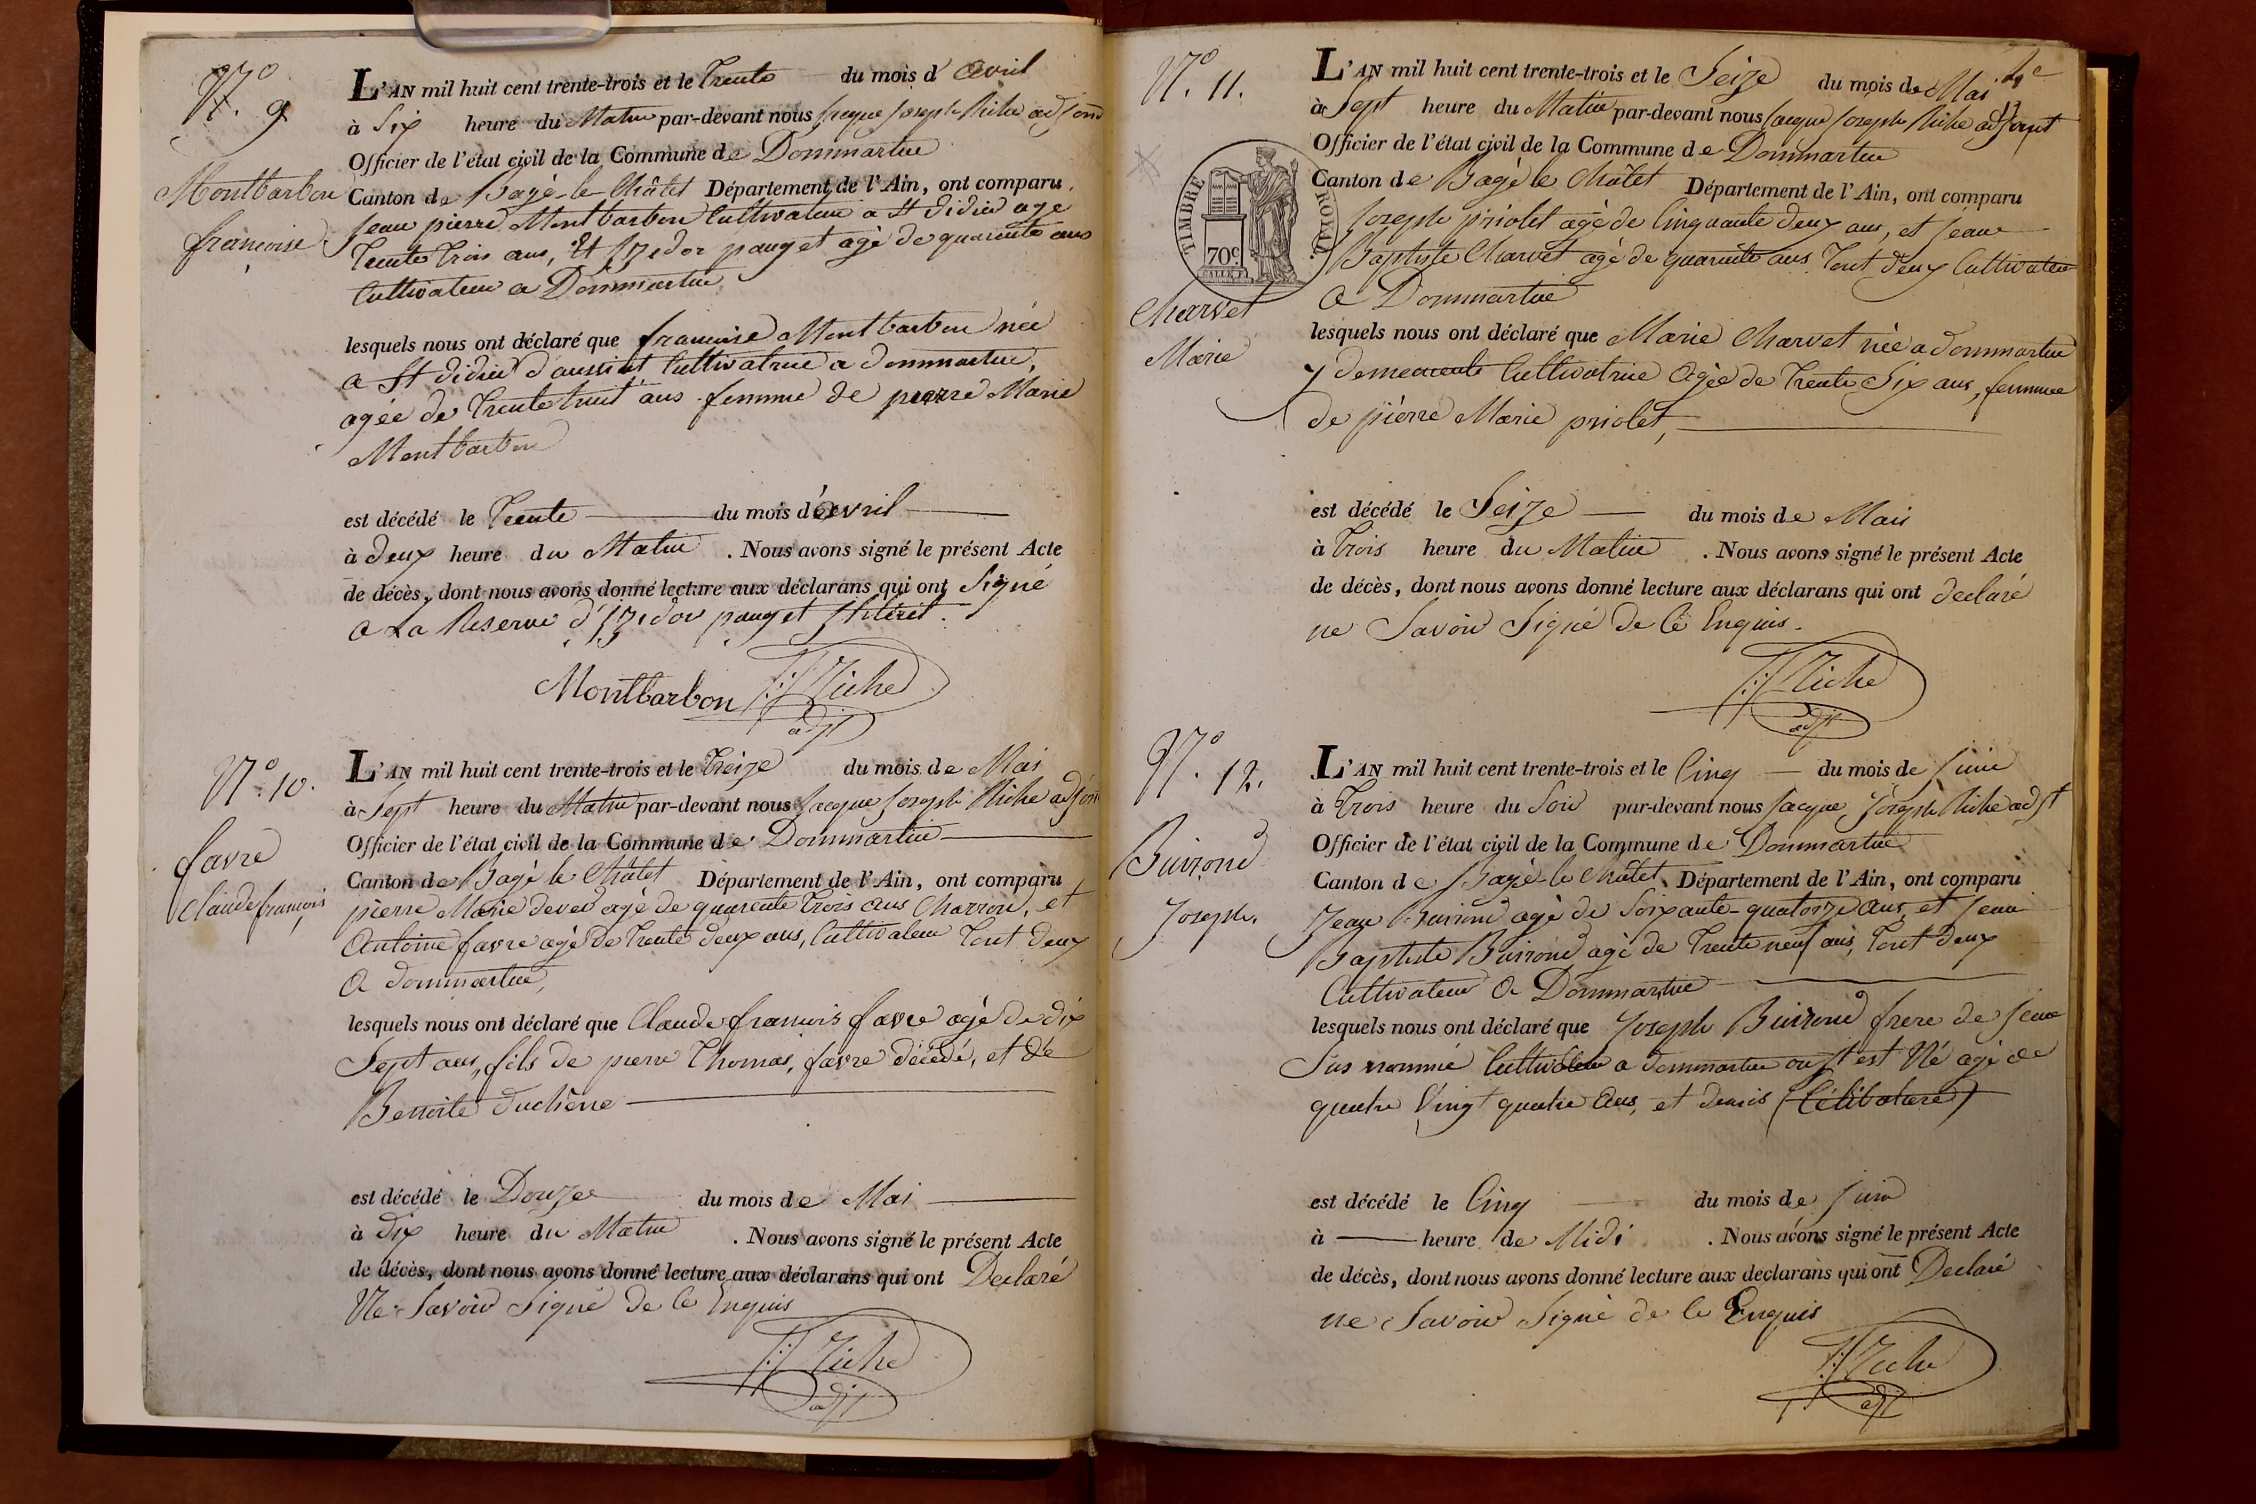 N.° 9
Montbarbon
françoise
L'AN mil huit cent trente-trois et le Trente du mois d' avril
à Six heure du Matin par-devant nous Jacque Joseph Riche adjoin
Officier de l'état civil de la Commune de Dommartin
Canton de Bagé-le-Châtel Département de l'Ain, ont comparu
Jean pierre Montbarbon Cultivateur a St didier age
Trente Trois ans, Et Izedor pauget agé de quarente ans
Cultivateur a Dommartin
lesquels nous ont déclaré que francoise Montbarbon née
a St didier d'aussiat Cultivatrice a dommartin,
agée de Trente huit ans femme de pierre Marie
Montbarbon
est décédé le Trente du mois d'avril
à deux heure du Matin . Nous avons signé le présent Acte
de décès, dont nous avons donné lecture aux déclarans qui ont Signé
a La Reserve d'Izedor pauget Jlitéret.
Montbarbon JJRiche
adjt
N.° 10.
favre
Claude françois
L'AN mil huit cent trente-trois et le Treize du mois de Mai
à Sept heure du Matin par-devant nous Jacque Joseph Riche adjoin
Officier de l'état civil de la Commune de Dommartin
Canton de Bagé le Châtel Département de l'Ain, ont comparu
pierre Marie deved agé de quarente Trois ans Charron, et
Antoine favre agé de Trente deux ans, Cultivateur Tout deux
a dommartin,
lesquels nous ont déclaré que Claude francois favre agé de dix
Sept ans, fils de pierre Thomas, favre décédé, et de
Benoite duchêne
est décédé le Douze du mois de Mai
à dix heure du Matin . Nous avons signé le présent Acte
de décès, dont nous avons donné lecture aux déclarans qui ont Declaré
Ne Savoir Signé de Ce Enquis
JJRiche
adjt
4e
N.° 11.
TIMBRE ROYAL
70c.
Charvet
Marie
L'AN mil huit cent trente-trois et le Seize du mois de Mai
à Sept heure du Matin par-devant nous Jacque Joseph Riche adjoint
Officier de l'état civil de la Commune de Dommartin
Canton de Bagé le Châtel Département de l'Ain, ont comparu
Joseph priolet agé de Cinquante deux ans, et Jean
Baptiste Charvet agé de quarente ans Tout deux Cultivateur
a Dommartin
lesquels nous ont déclaré que Marie Charvet née a dommartin
y demeurente Cultivatrice Agée de Trente Six ans, femme
de pierre Marie priolet,
est décédé le Seize du mois de Mai
à Trois heure du Matin . Nous avons signé le présent Acte
de décès, dont nous avons donné lecture aux déclarans qui ont declaré
ne Savoir Signé de Ce Enquis.
JJRiche
adjt
N.° 12.
Buirond
Joseph.
L'AN mil huit cent trente-trois et le Cinq du mois de Juin
à Trois heure du Soir par-devant nous Jacque Joseph Riche adjt
Officier de l'état civil de la Commune de Dommartin
Canton de Bagé-le-Châtel Département de l'Ain, ont comparu
Jean Buirond agé de Soixante-quatorze ans, et Jean
Baptiste Buirond agé de Trente neuf ans, Tout deux
Cultivateur a Dommartin
lesquels nous ont déclaré que Joseph Buirond frere de Jean
Sus nommé Cultivateur a dommartin ou Jl est Né agé de
quatre Vingt quatre Ans, et demis (Célibataire)
est décédé le Cinq du mois de Juin
à heure de Midi . Nous avons signé le présent Acte
de décès, dont nous avons donné lecture aux declarans qui ont Declaré
ne Savoir Signé de Ce Enquis
JJRiche
adjt